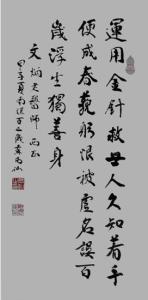 運用金針救世人久知着手
便成春藝所恨被虛名誤百
歲浮生獨善身
文炳老醫師 兩正
甲子夏